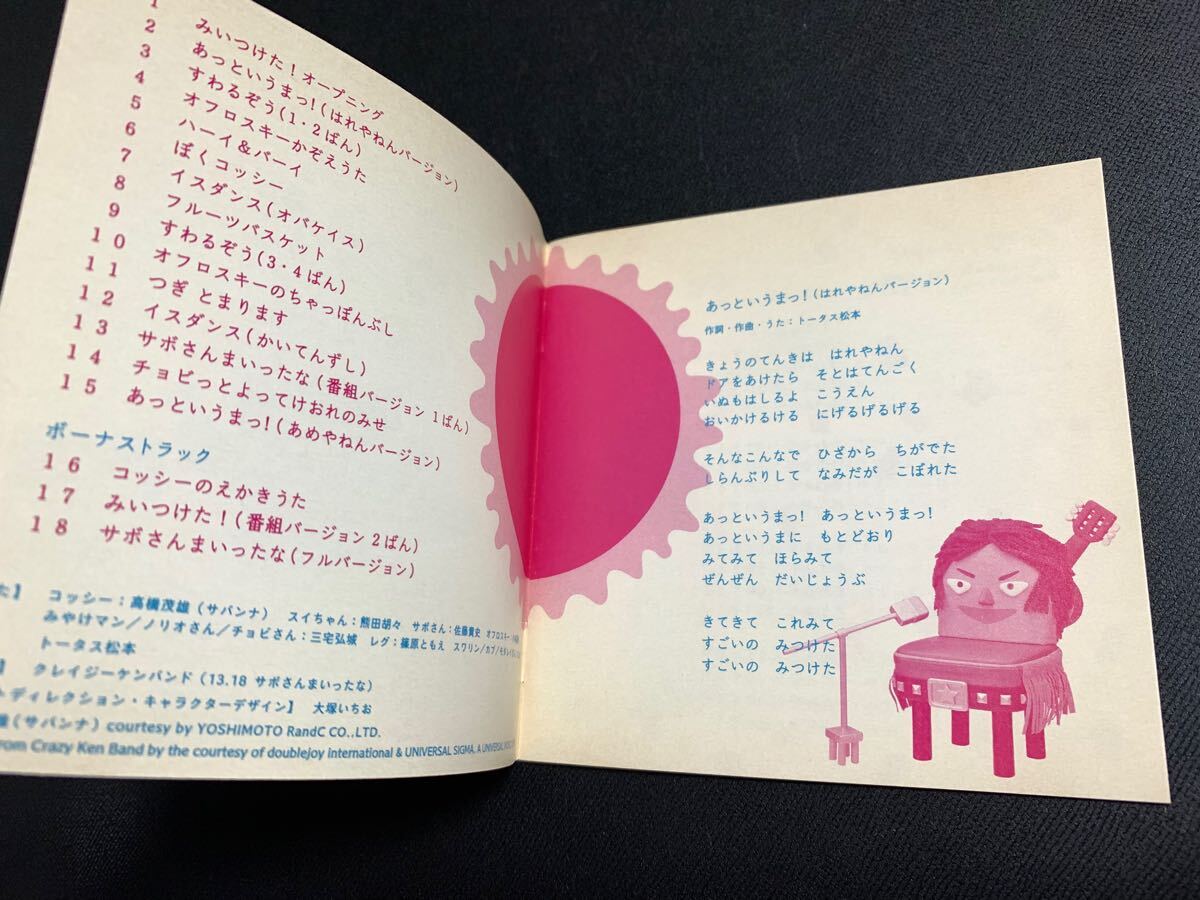 1 みいつけた！オープニング
2 あっというまっ！(はれやねんバージョン)
3 すわるぞう(1・2ばん)
4 オフロスキーかぞえうた
5 ハーイ＆バーイ
6 ぼくコッシー
7 イスダンス(オバケイス)
8 フルーツバスケット
9 すわるぞう(3・4ばん)
10 オフロスキーのちゃっぽんぶし
11 つぎ とまります
12 イスダンス(かいてんずし)
13 サボさんまいったな(番組バージョン 1ばん)
14 チョビっとよってけおれのみせ
15 あっというまっ！(あめやねんバージョン)
ボーナストラック
16 コッシーのえかきうた
17 みいつけた！(番組バージョン 2ばん)
18 サボさんまいったな(フルバージョン)
た】 コッシー：高橋茂雄(サバンナ) スイちゃん：熊田胡々 サボさん：佐藤貴史 オフロスキー
みやけマン／ノリオさん／チョビさん：三宅弘城 レグ：篠原ともえ スワリン／カブ／
トータス松本
】 クレイジーケンバンド(13.18 サボさんまいったな)
ディレクション・キャラクターデザイン】 大塚いちお
雄(サバンナ) courtesy by YOSHIMOTO RandC CO.,LTD.
rom Crazy Ken Band by the courtesy of doublejoy international & UNIVERSAL SIGMA. A UNIVERSAL
あっというまっ！(はれやねんバージョン)
作詞・作曲・うた：トータス松本
きょうのてんきは はれやねん
ドアをあけたら そとはてんごく
いぬもはしるよ こうえん
おいかけるける にげるげるげる
そんなこんなで ひざから ちがでた
しらんぷりして なみだが こぼれた
あっというまっ！ あっというまっ！
あっというまに もとどおり
みてみて ほらみて
ぜんぜん だいじょうぶ
きてきて これみて
すごいの みつけた
すごいの みつけた